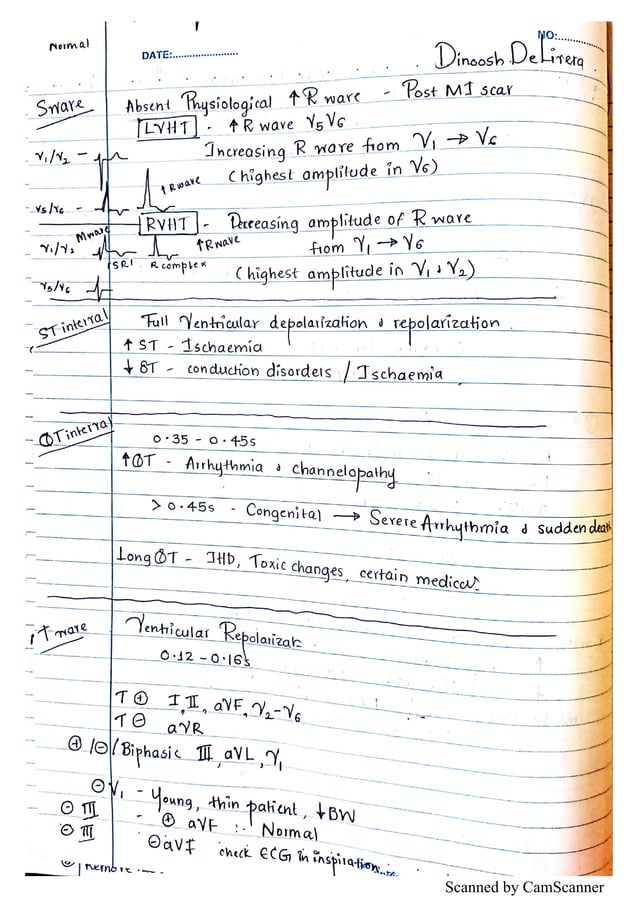 Normal
DATE:........................
NO:..............
Dinoosh De Livera
S wave
Absent Physiological ↑ R wave - Post MI scar
LVHT - ↑ R wave V5 V6
V1/V2 -
Increasing R wave from V1 → V6
↑ R wave
(highest amplitude in V6)
V5/V6 -
RVHT - Decreasing amplitude of R wave
M wave
V1/V2
↑R wave
from V1 → V6
R complex
V5/V6
(highest amplitude in V1 & V2)
ST interval
Full Ventricular depolarization & repolarization
↑ ST - Ischaemia
↓ ST - conduction disorders / Ischaemia
QT interval
0.35 - 0.45s
↑QT - Arrhythmia & channelopathy
> 0.45s - Congenital → Severe Arrhythmia & sudden death
Long QT - IHD, Toxic changes, certain medicat:
T wave
Ventricular Repolarizat:
0.12 - 0.16s
T ⊕ I, II, aVF, V2-V6
T ⊖ aVR
⊕/⊖/Biphasic III, aVL, V1
⊖V1 - Young, thin patient, ↓BW
⊖ III - ⊕ aVF :- Normal
⊖ III ⊖aVF check ECG in inspiration
Scanned by CamScanner